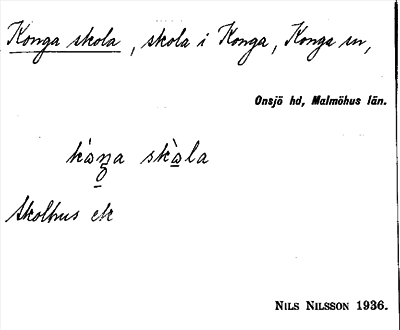 Konga skola, skola i Konga, Konga sn,
Onsjö hd, Malmöhus län.
skola
Skolhus ek
NILS NILSSON 1936.